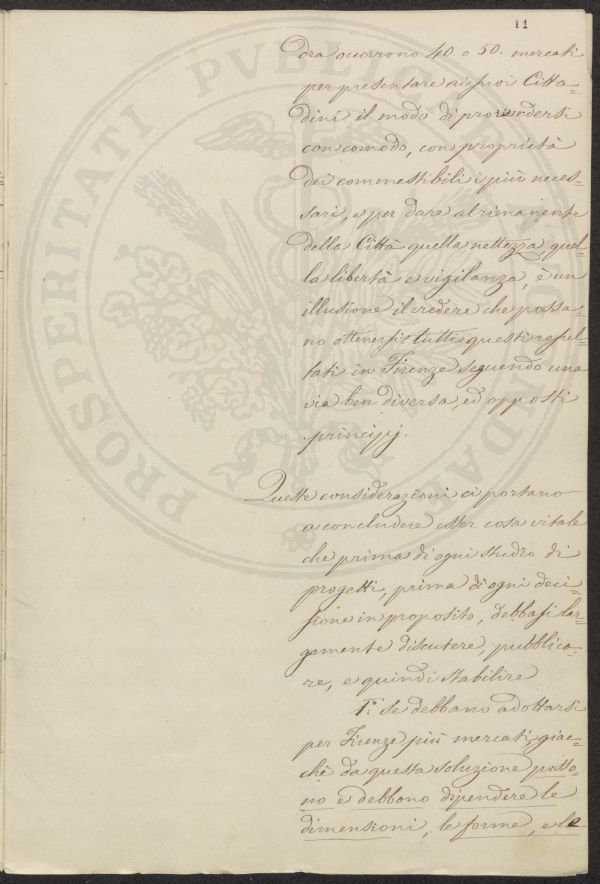 11
dra occorrono 40 o 50. mercati
per presentare ai suoi Citta=
dini il modo di provvedersi
con comodo, con proprietà
dei commestibili i più neces=
sari, e per dare al rimanente
della Città quella nettezza, quel=
la libertà e vigilanza, è un
illusione il credere che possa=
no ottenersi tutti questi resul=
tati in Firenze seguendo una
via ben diversa, ed opposti
principj.
Queste considerazioni ci portano
a concludere esser cosa vitale
che prima di ogni studio di
progetti, prima di ogni deci=
sione in proposito, debbasi lar=
gamente discutere, pubblica=
re, e quindi stabilire
1º: se debbano adottarsi
per Firenze più mercati, giac=
chè da questa soluzione posso=
no e debbono dipendere le
dimensioni, le forme, e le
PROSPERITATI PUBLICAE AUGENDAE